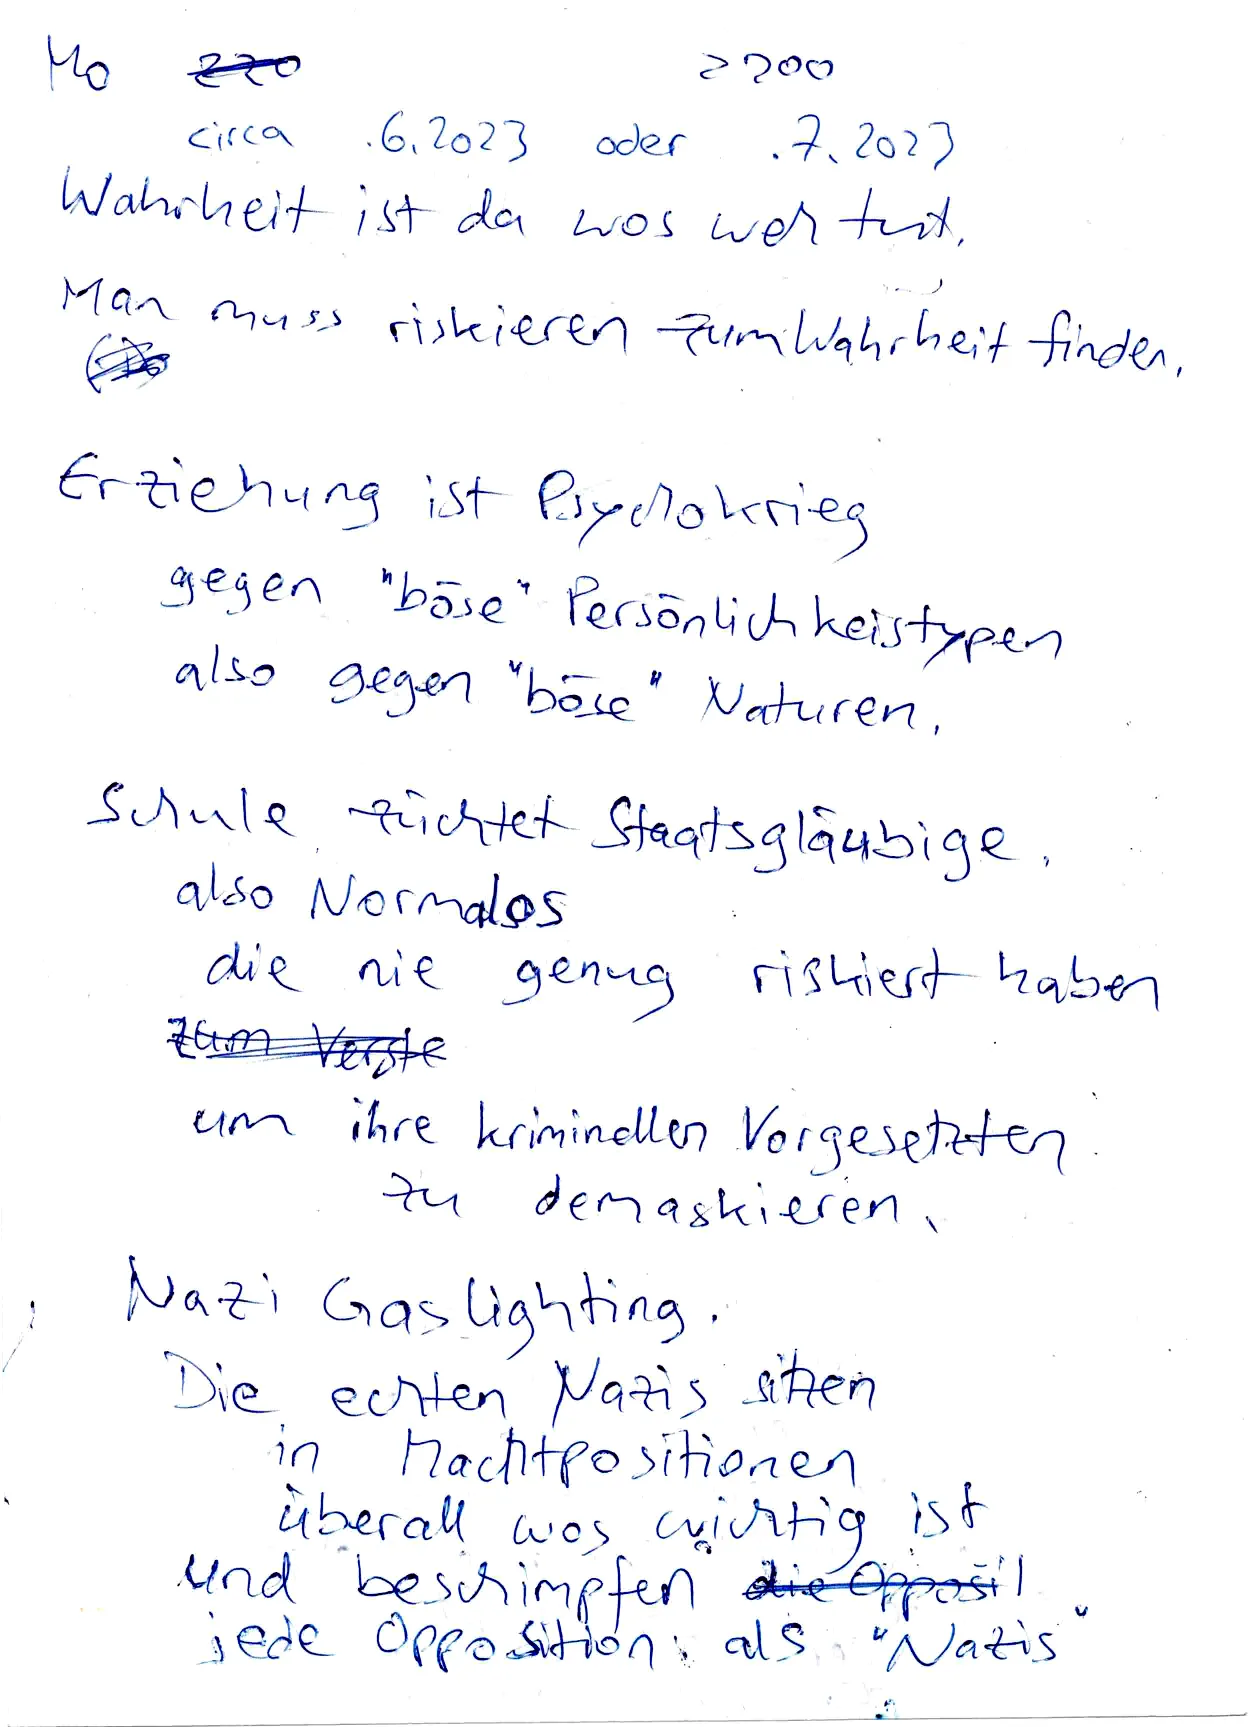 Mo 220 2200
circa .6.2023 oder .7.2023
Wahrheit ist da wos weh tut.
Man muss riskieren zum Wahrheit finden.
Erziehung ist Psychokrieg
gegen "böse" Persönlichkeistypen
also gegen "böse" Naturen.
Schule züchtet Staatsgläubige.
also Normalos
die nie genug riskiert haben
zum Verste
um ihre kriminellen Vorgesetzten
zu demaskieren.
Nazi Gaslighting.
Die echten Nazis sitzen
in Machtpositionen
überall wos wichtig ist
und beschimpfen die Opposil
jede Opposition als "Nazis"